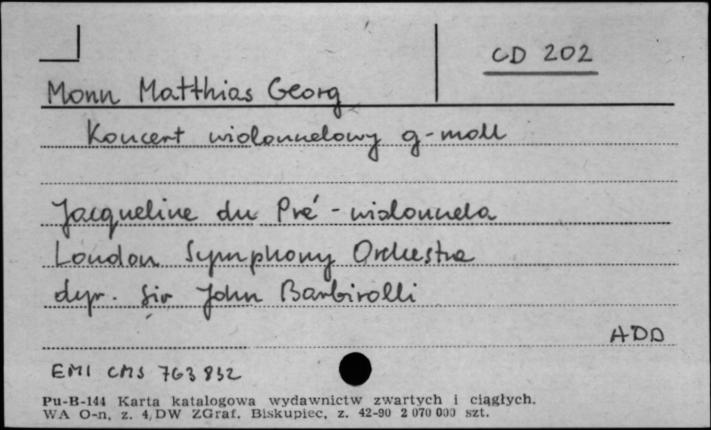 CD 202
Monn Matthias Georg
Koncert wiolonczelowy g-moll
Jacqueline du Pré - wiolonczela
London Symphony Orchestra
dyr. Sir John Barbirolli
ADD
EMI CMS 763 832
Pu-B-144 Karta katalogowa wydawnictw zwartych i ciągłych.
WA O-n, z. 4, DW ZGraf. Biskupiec, z. 42-90 2 070 000 szt.